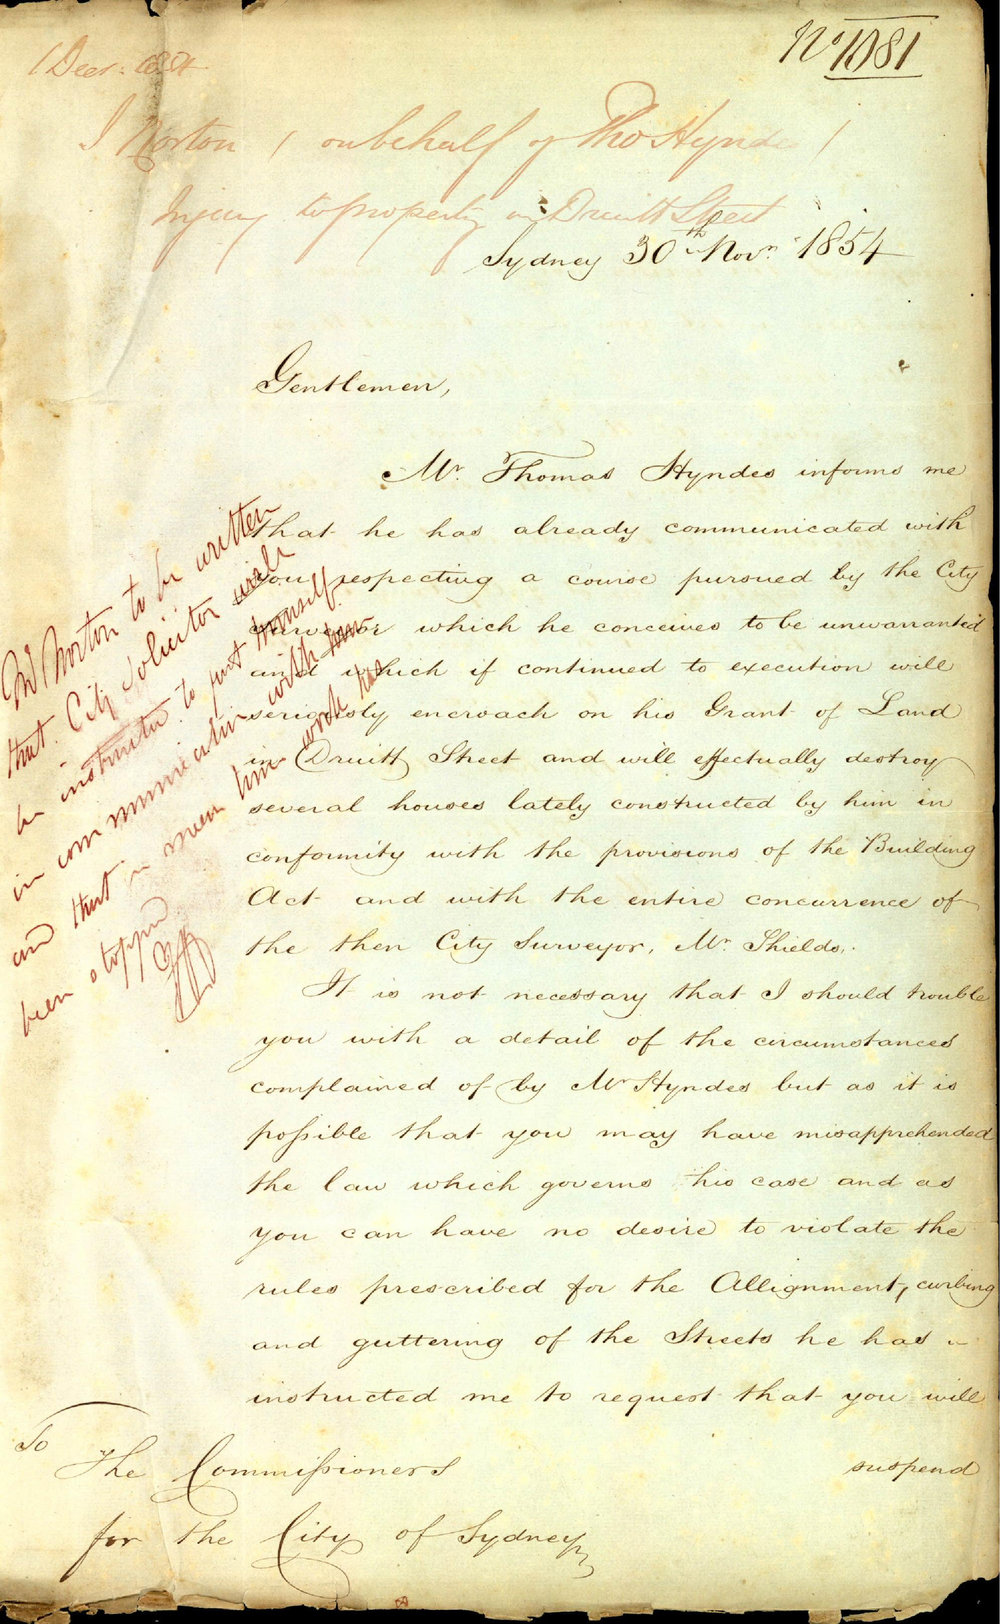 No 1081
1 Decr. 1854
J Norton (on behalf of Tho Hyndes)
Injury to property in Druitt Street
Sydney 30th Novr. 1854
Gentlemen,
Mr. Thomas Hyndes informs me
that he has already communicated with
you respecting a course pursued by the City
Surveyor which he conceives to be unwarranted
and which if continued to execution will
seriously encroach on his Grant of Land
in Druitt Street and will effectually destroy
several houses lately constructed by him in
conformity with the provisions of the Building
Act and with the entire concurrence of
the then City Surveyor, Mr. Shields.
It is not necessary that I should trouble
you with a detail of the circumstances
complained of by Mr Hyndes but as it is
possible that you may have misapprehended
the law which governs his case and as
you can have no desire to violate the
rules prescribed for the Allignment, curbing
and guttering of the Streets he has
instructed me to request that you will
suspend
To
The Commissioners
for the City of Sydney
Mr Norton to be written
that City Solicitor will
be instructed to put himself
in communication with him
and that in mean time work has
been stopped